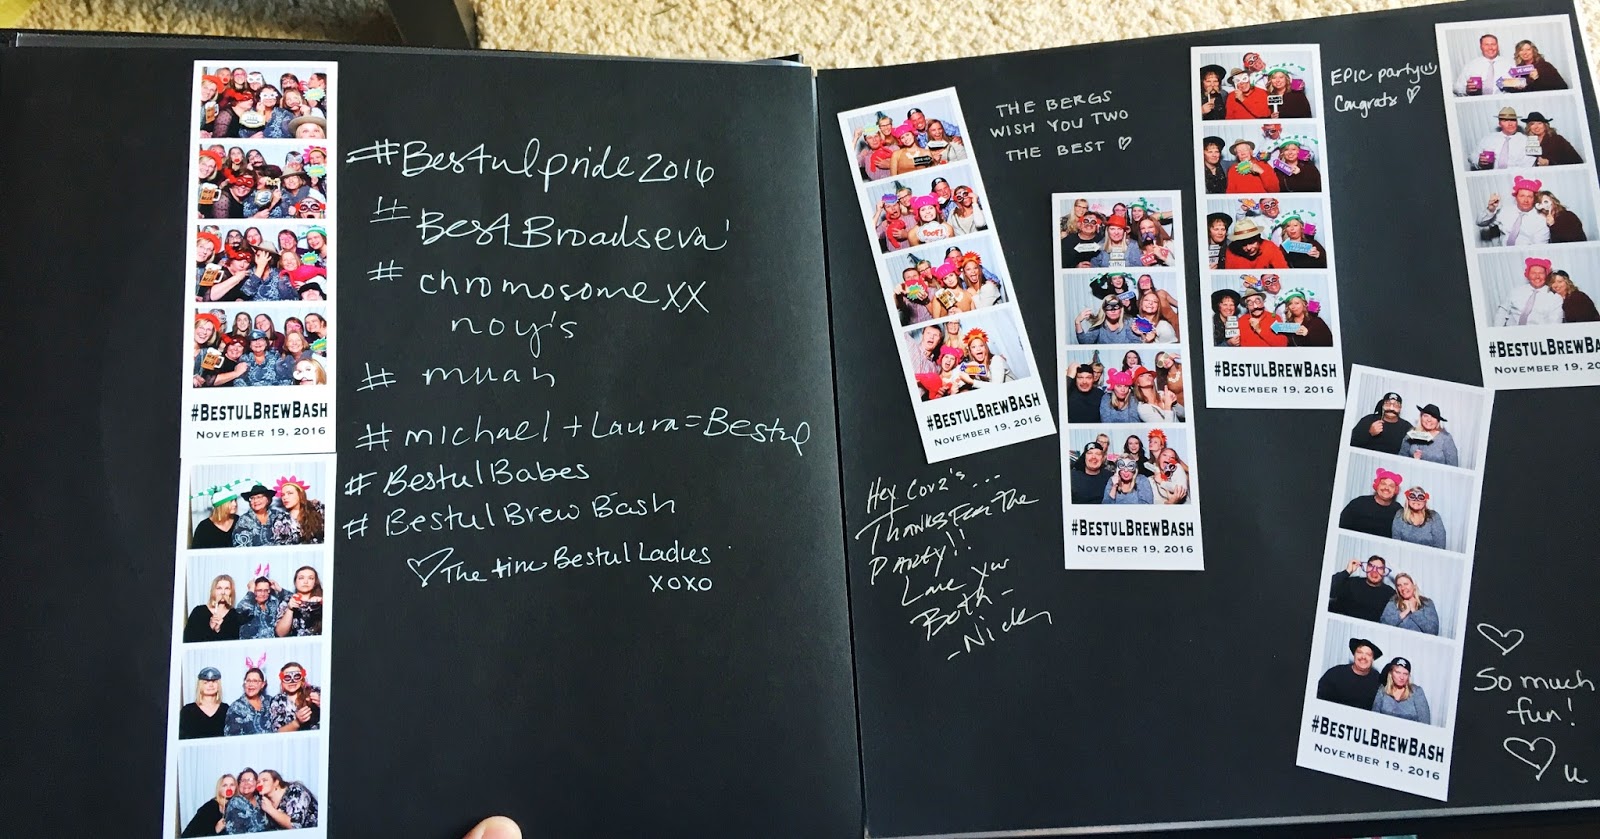 #BESTULBREWBASH
NOVEMBER 19, 2016
#Bestulpride2016
#BestBroadseva'
#chromosomexx
noy's
#muah
#michael+Laura=Bestul
#BestulBabes
#BestulBrewBash
♡The Bestul Ladies
xoxo
#BESTULBREWBASH
NOVEMBER 19, 2016
THE BERGS
WISH YOU TWO
THE BEST ♡
Hey Cov2's...
THANKS For The
PARTY!!
Love you
Both -
#BESTULBREWBASH
NOVEMBER 19, 2016
#BESTULBREWBASH
NOVEMBER 19, 2016
EPIC party
Congrats ♡
#BESTULBREWBA
NOVEMBER 19, 2016
#BESTULBREWBASH
NOVEMBER 19, 2016
♡
So much
fun!
♡ u